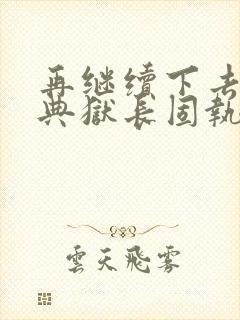 再继续下去
典獄长固執
雲天飛雾